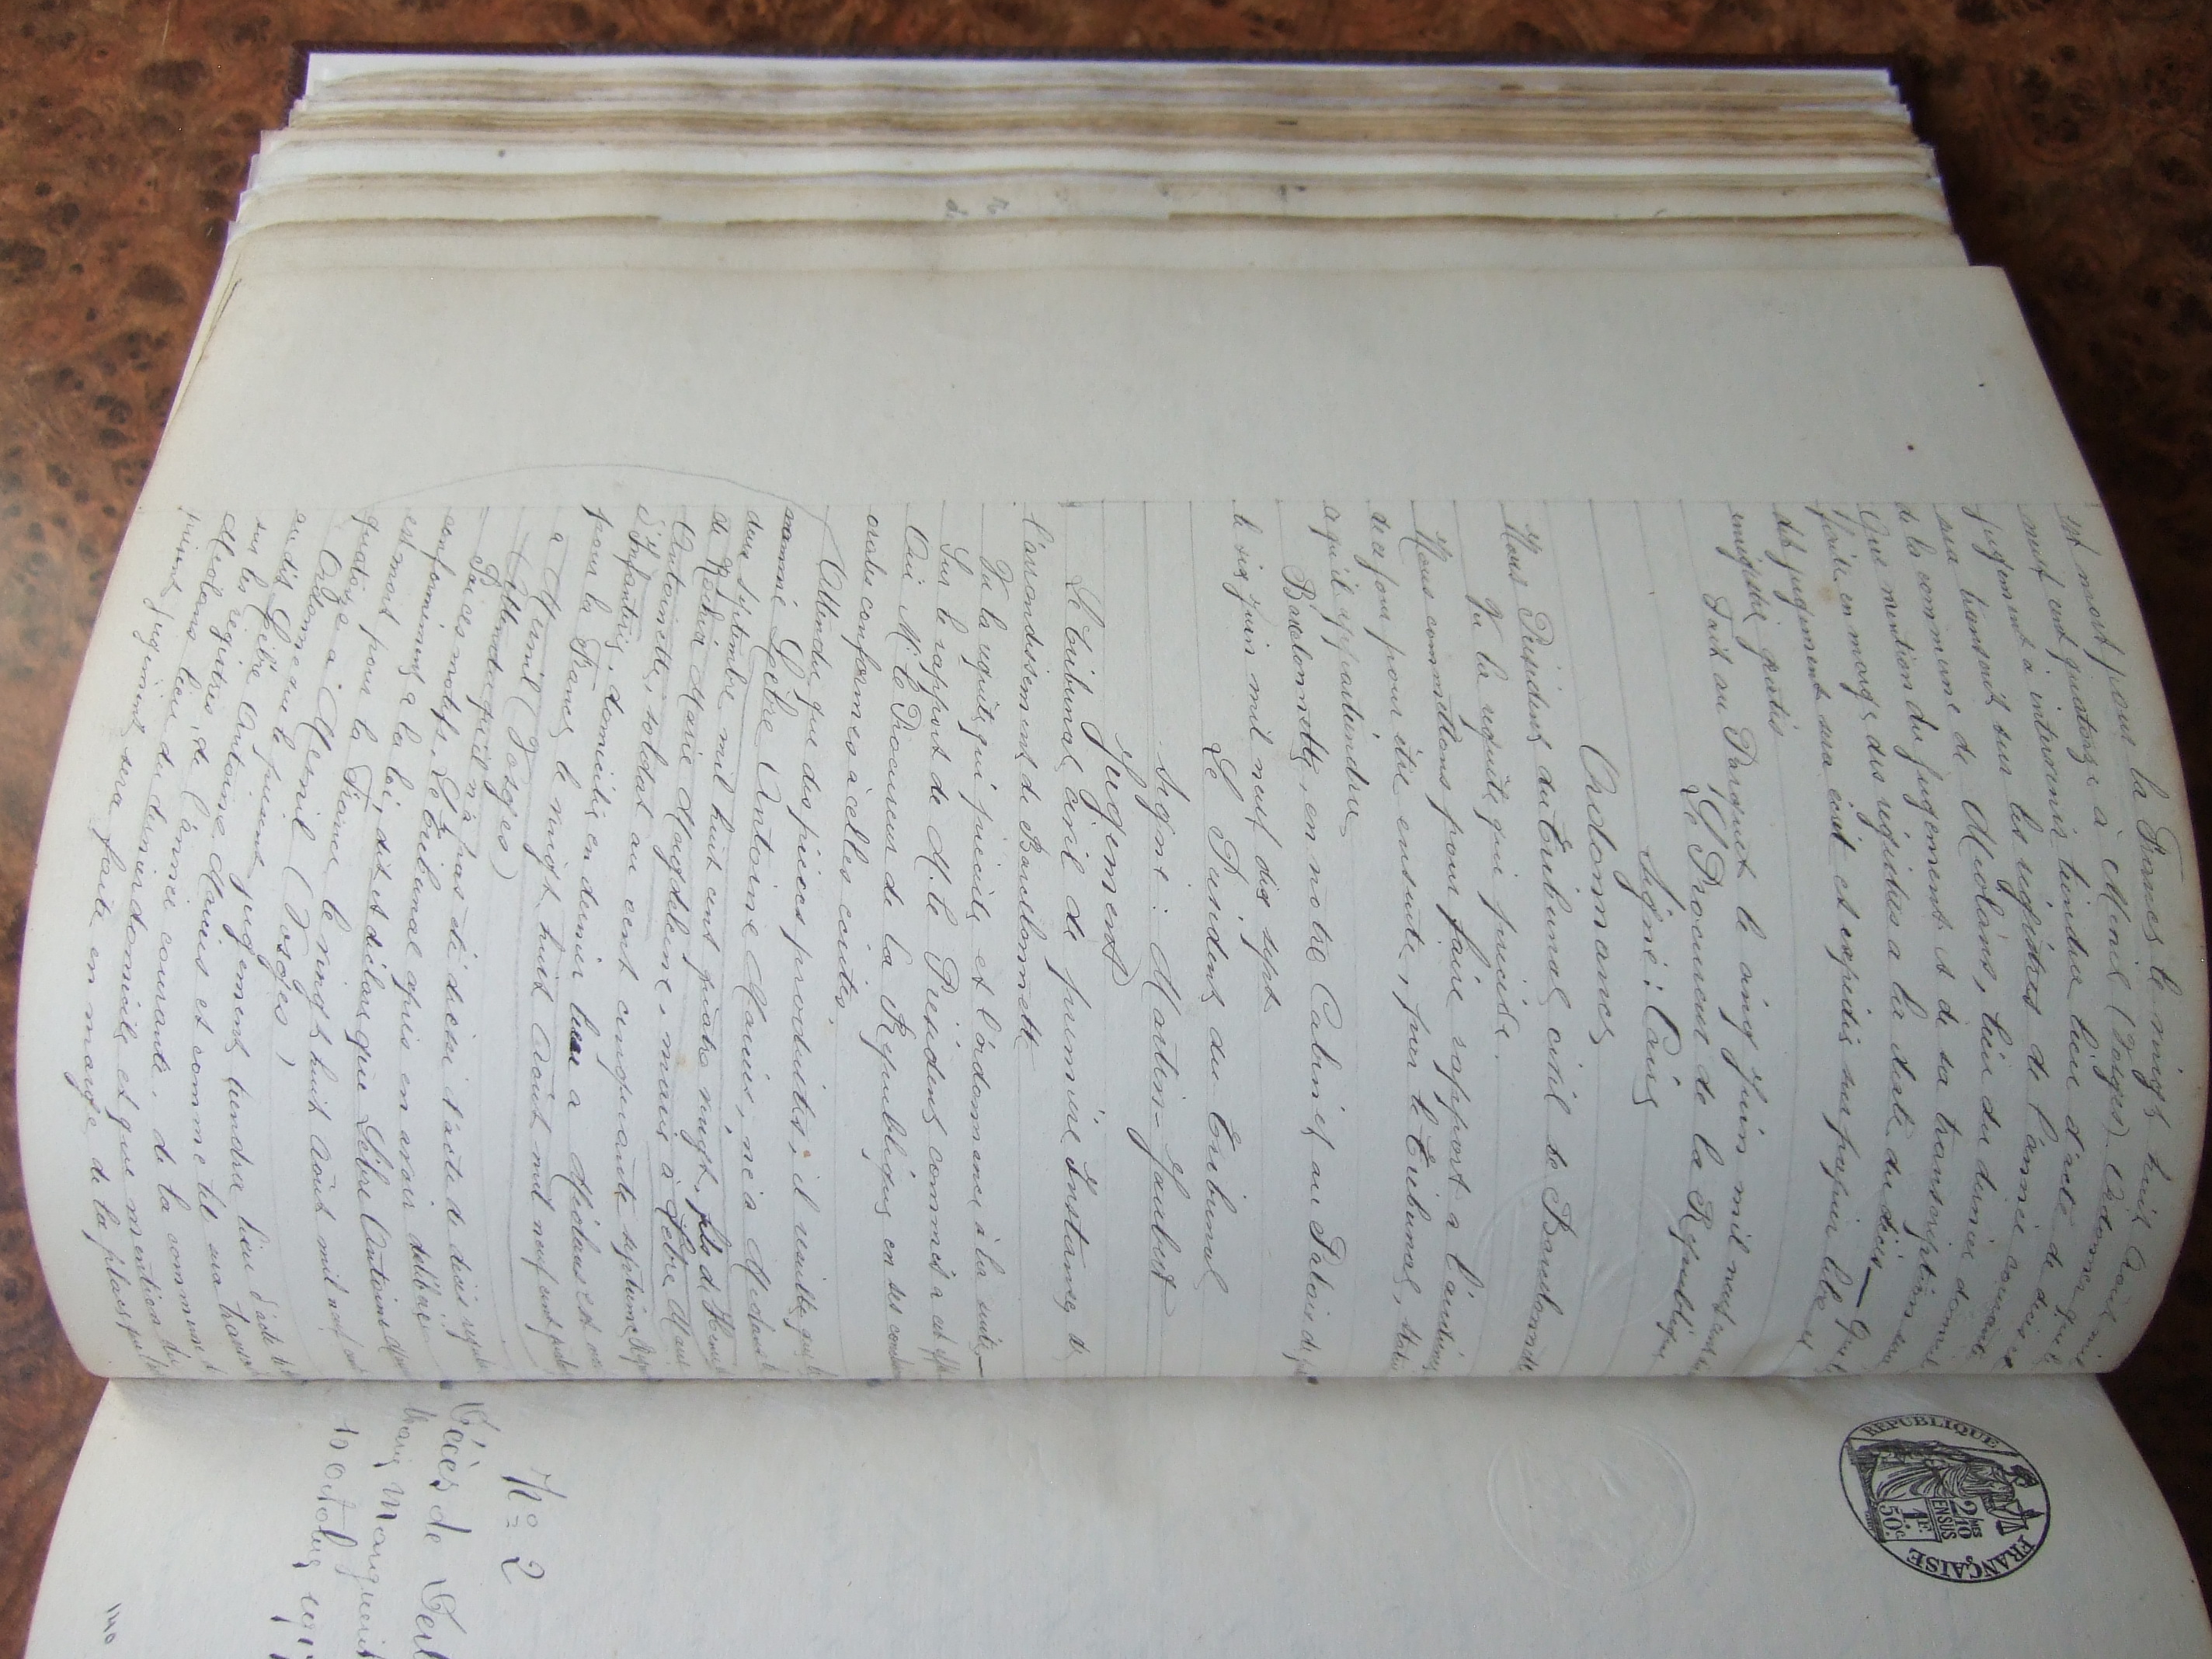 est mort pour la France le vingt huit Août mil
neuf cent quatorze à Mesnil (Vosges) Ordonner que le
jugement à intervenir tiendra lieu d'acte de décès et
sera transcrit sur les registres de l'année courante
de la commune de Méolans, lieu du dernier domicile
Que mention du jugement et de sa transcription sera
portée en marge des registres à la date du décès — Que le
dit jugement sera écrit et expédié sur papier libre et
enregistré gratis
Fait au Parquet le cinq Juin mil neuf cent
Le Procureur de la République
Signé : Cains
Ordonnance
Nous Président du Tribunal civil de Barcelonnette
Vu la requête qui précède.
Nous commettons pour faire rapport à l'audience
de ce jour pour être ensuite, par le Tribunal, statué
ce qu'il appartiendra
Barcelonnette, en notre Cabinet au Palais de
le six Juin mil neuf cent dix sept
Le Président du Tribunal
Signé : Martin-Jaubert
Jugement
Le tribunal civil de première Instance de
l'arrondissement de Barcelonnette
Vu la requête qui précède et l'ordonnance à la suite —
Sur le rapport de M. le Président commis à cet effet
Oui M. le Procureur de la République en ses conclusions
orales conformes à celles écrites,
Attendu que des pièces produites, il résulte que le
nommé Lèbre Antoine Marius, né à Méolans le
deux septembre mil huit cent quatre vingt, fils de
et de Marie Magdeleine, marié à Lèbre Marie
Antoinette, soldat au cent cinquante septième Régiment
d'Infanterie, domicilié en dernier lieu à Méolans est mort
pour la France le vingt huit Août mil neuf cent quatorze
à Mesnil (Vosges)
Attendu qu'il n'a pas été dressé d'acte de décès régulier
Par ces motifs, Le Tribunal après en avoir délibéré
conformément à la loi, dit et déclare que Lèbre Antoine
est mort pour la France le vingt huit Août mil neuf cent
quatorze à Mesnil (Vosges)
Ordonne que le présent jugement tiendra lieu d'acte de
au dit Lèbre Antoine Marius et comme tel sera transcrit
sur les registres de l'année courante, de la commune de
Méolans lieu du dernier domicile et que mention du
présent jugement sera faite en marge de la
N° 2
Décès de
Marie Marguerite
10 octobre